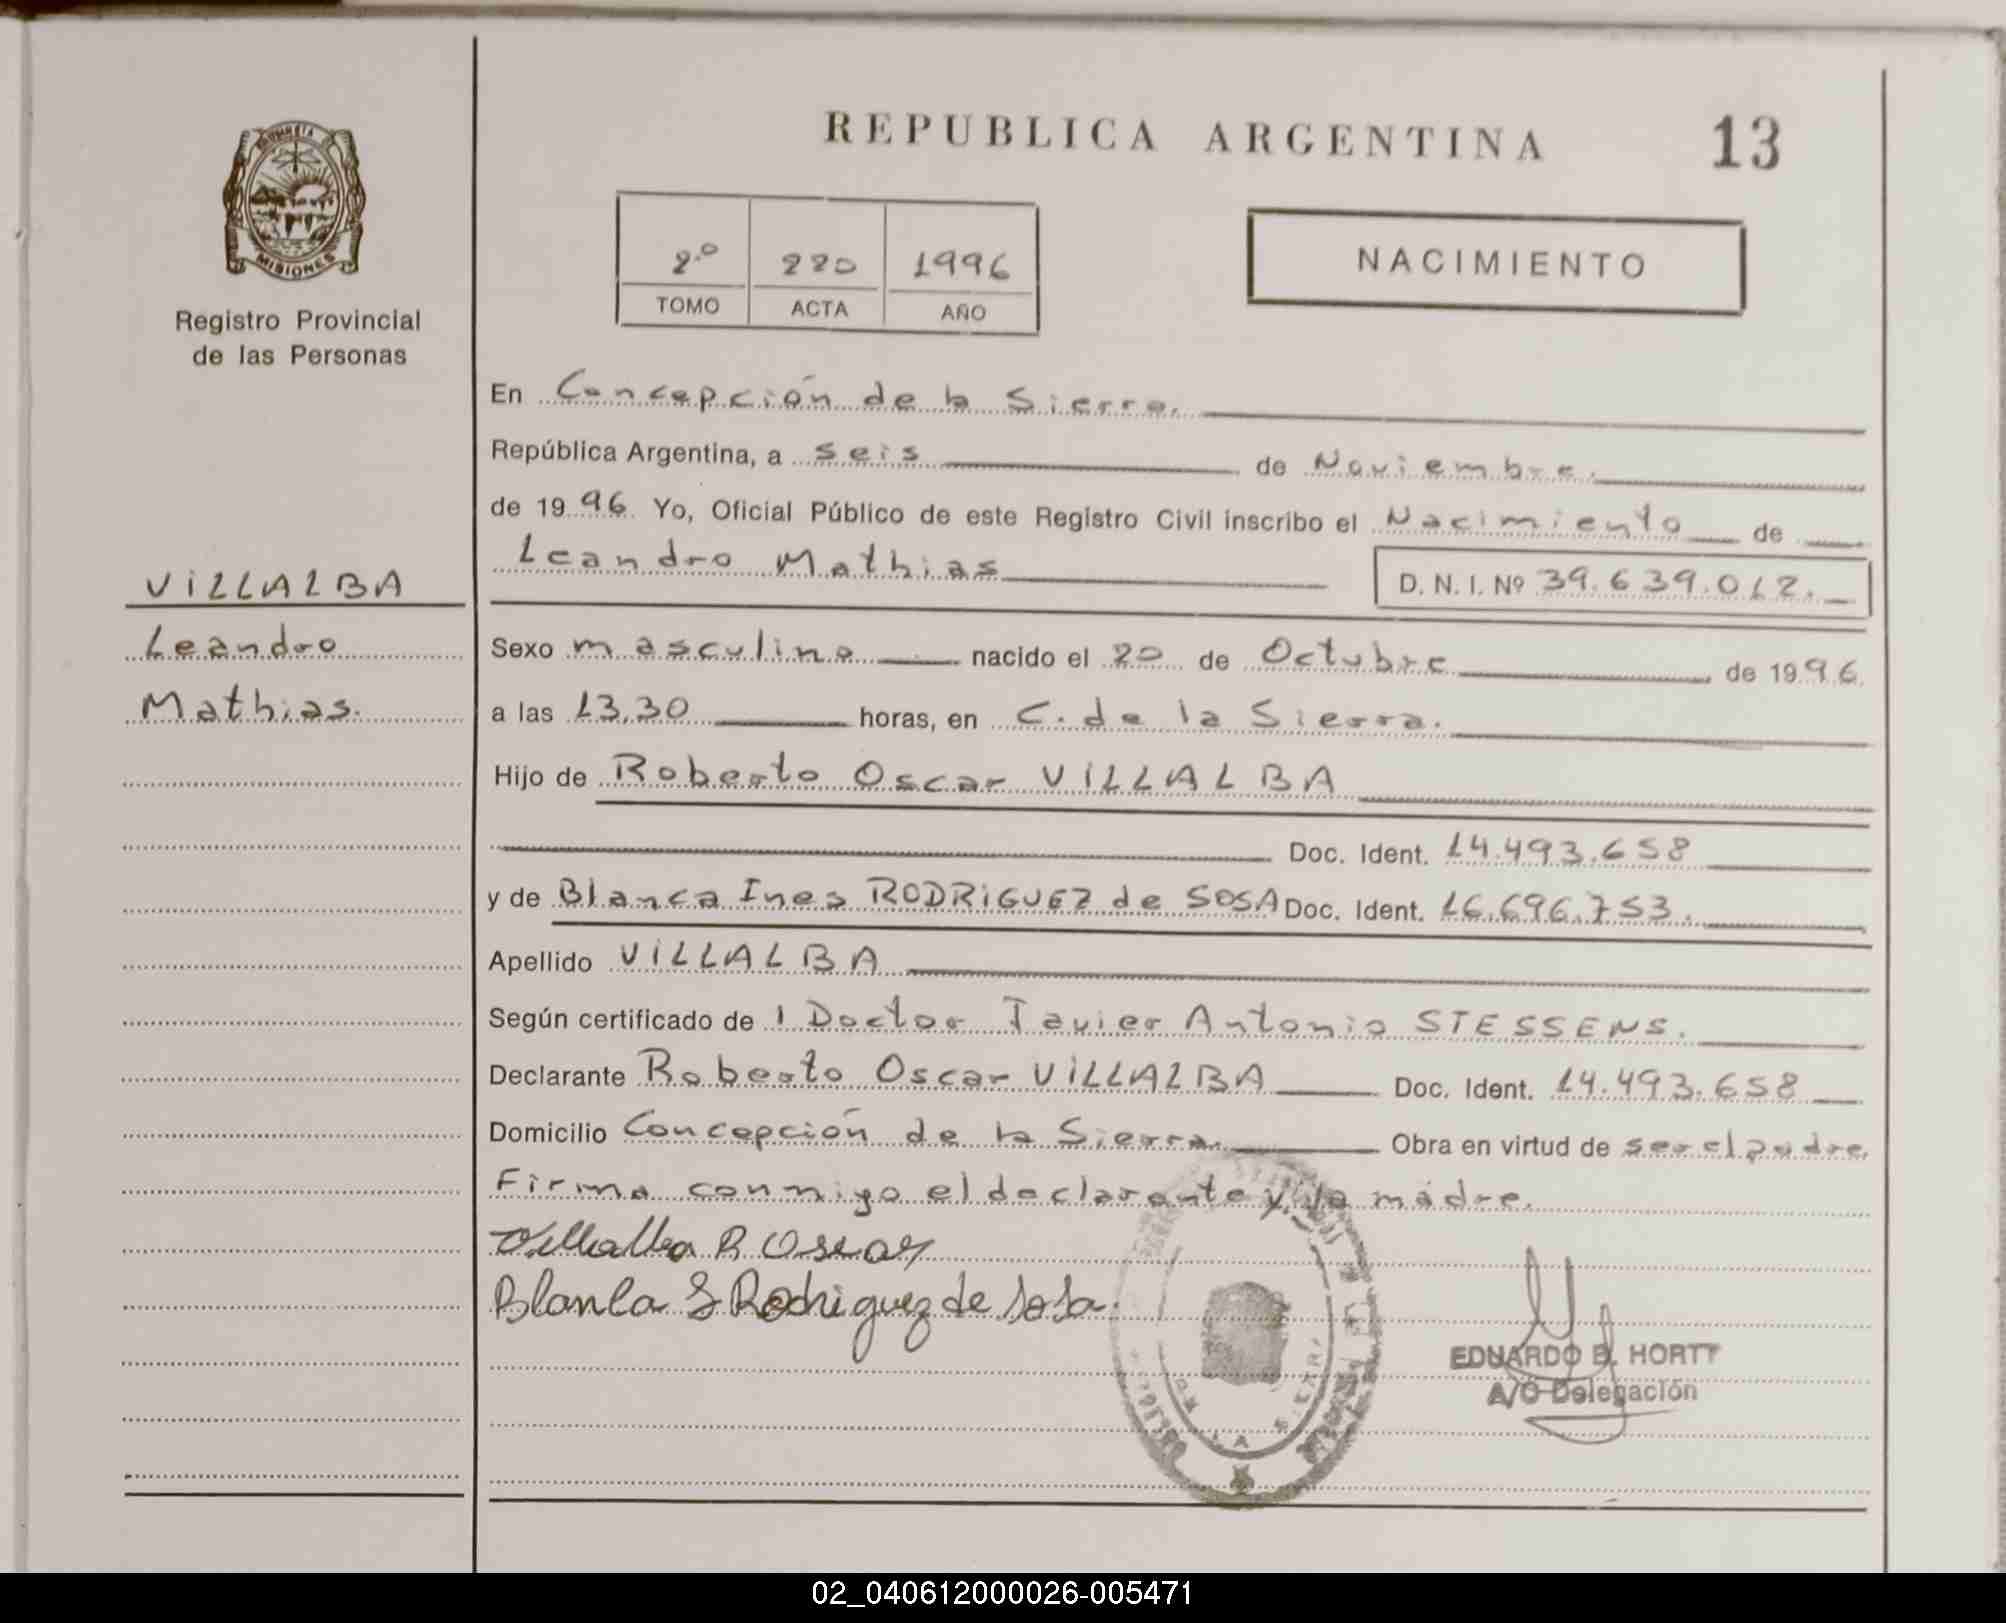 REPUBLICA ARGENTINA
13
MISIONES
Registro Provincial
de las Personas
2º 220 1996
TOMO ACTA AÑO
NACIMIENTO
En Concepción de la Sierra.
República Argentina, a seis de Noviembre.
de 1996. Yo, Oficial Público de este Registro Civil inscribo el Nacimiento de
Leandro Mathias D. N. I. Nº 39.639.012.
VILLALBA
Leandro
Mathias.
Sexo masculino nacido el 20 de Octubre de 1996.
a las 13,30 horas, en C. de la Sierra.
Hijo de Roberto Oscar VILLALBA
Doc. Ident. 14.493.658
y de Blanca Ines RODRIGUEZ de SOSA Doc. Ident. 16.696.753.
Apellido VILLALBA
Según certificado de l Doctor Javier Antonio STESSENS.
Declarante Roberto Oscar VILLALBA Doc. Ident. 14.493.658
Domicilio Concepción de la Sierra. Obra en virtud de ser el padre.
Firma conmigo el declarante y la madre.
Villalba R Oscar
Blanca I Rodriguez de Sosa.
EDUARDO B. HORTT
A/C Delegación
02_040612000026-005471